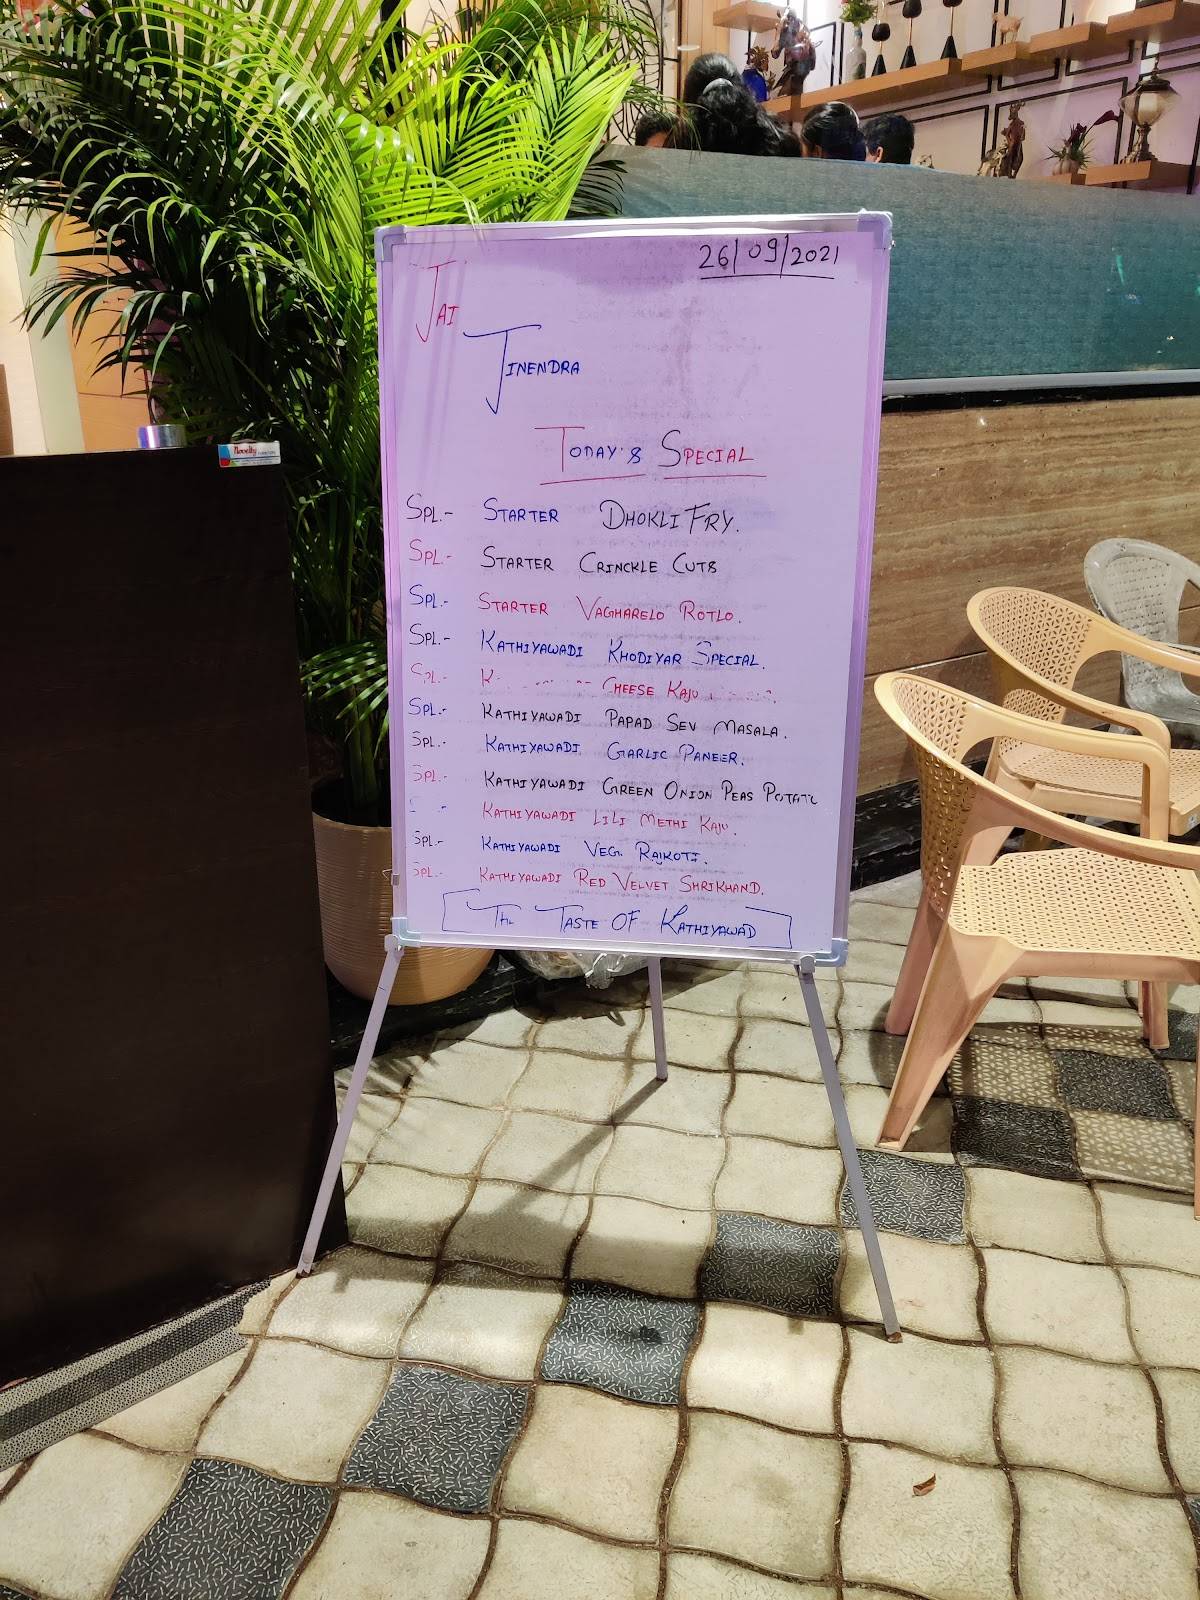 26/09/2021
JAI
JINENDRA
TODAY'S SPECIAL
SPL.- STARTER DHOKLI FRY.
SPL.- STARTER CRINCKLE CUTS
SPL.- STARTER VAGHARELO ROTLO.
SPL.- KATHIYAWADI KHODIYAR SPECIAL.
SPL.- CHEESE KAJU
SPL.- KATHIYAWADI PAPAD SEV MASALA.
SPL.- KATHIYAWADI GARLIC PANEER.
SPL.- KATHIYAWADI GREEN ONION PEAS POTATO
KATHIYAWADI LILI METHI KAJU.
SPL.- KATHIYAWADI VEG. RAJKOTI.
SPL.- KATHIYAWADI RED VELVET SHRIKHAND.
THE TASTE OF KATHIYAWAD
Novelty